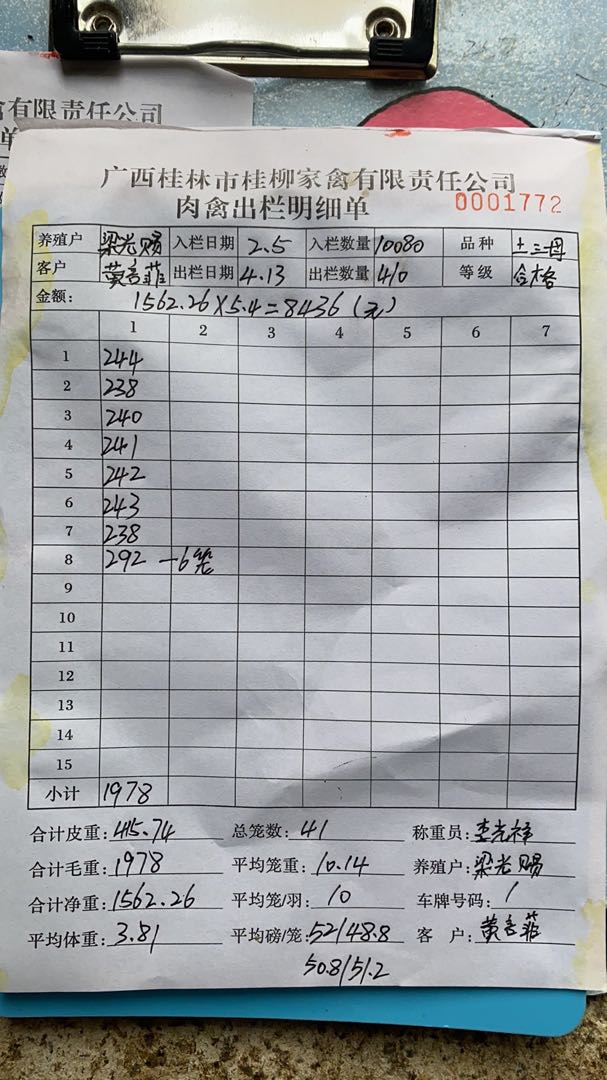 有限责任公司
单
广西桂林市桂柳家禽有限责任公司
肉禽出栏明细单 0001772
养殖户 梁光赐 入栏日期 2.5 入栏数量 10080 品种 土三母
客户 黄言菲 出栏日期 4.13 出栏数量 410 等级 合格
金额： 1562.26×5.4=8436（元）
1 2 3 4 5 6 7
1 244
2 238
3 240
4 241
5 242
6 243
7 238
8 292 —6笼
9
10
11
12
13
14
15
小计 1978
合计皮重：415.74 总笼数：41 称重员：李光祥
合计毛重：1978 平均笼重：10.14 养殖户：梁光赐
合计净重：1562.26 平均笼/羽：10 车牌号码：/
平均体重：3.81 平均磅/笼：52/48.8 客 户：黄言菲
50.8/51.2